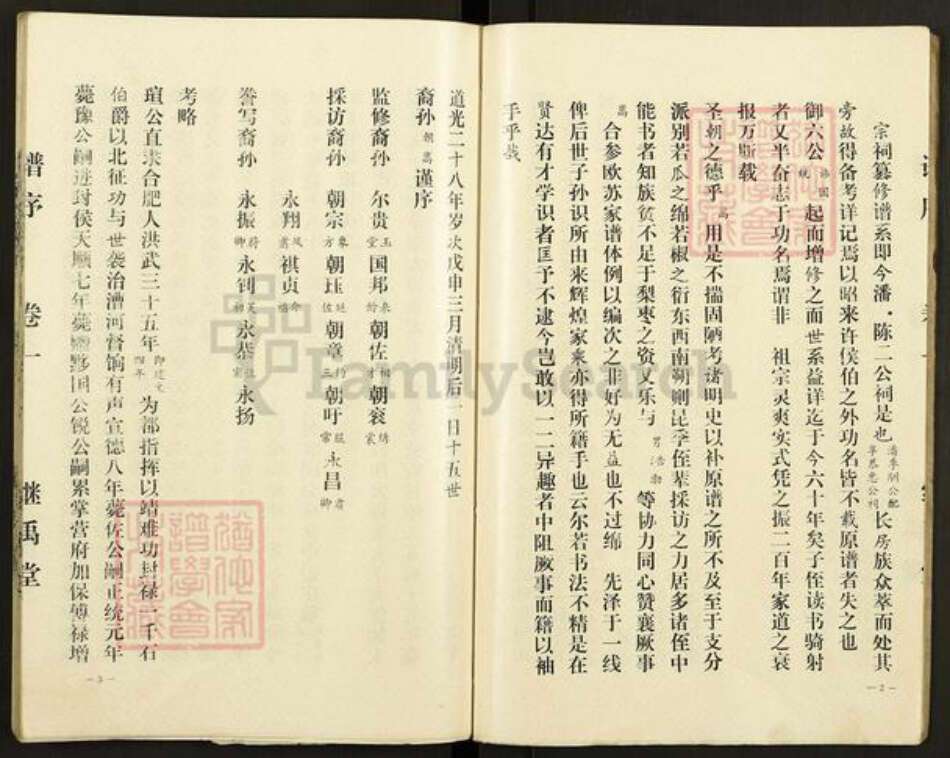 宗祠纂修谱系即今潘·陈二公祠是也 长房族众萃而处其
旁故得备考详记焉以昭来许侯伯之外功名皆不载原谱者失之也
御六公 起而增修之而世系益详迄于今六十年矣子侄读书骑射
者又半奋志于功名焉谓非 祖宗灵爽实式凭之振二百年家道之衰
报万斯载
圣朝之德乎 用是不揣固陋考诸明史以补原谱之所不及至于支分
派别若瓜之绵若椒之衍东西南朔则昆季侄辈採访之力居多诸侄中
能书者知族贫不足于梨枣之资又乐与 等协力同心赞襄厥事
嵩 合参欧苏家谱体例以编次之非好为无益也不过绵 先泽于一线
俾后世子孙识所由来辉煌家乘亦得所籍手也云尔若书法不精是在
贤达有才学识者匡予不逮今岂敢以一二异趣者中阻厥事而籍以袖
手乎哉
— 2 —
道光二十八年岁次戊申三月清明后一日十五世
裔孙 朝嵩 谨序
监修裔孙 尔贵 玉堂 国邦 朝佐 朝衮
採访裔孙 朝宗 朝珏 朝章 朝吁 永昌
永翔 祺贞
誊写裔孙 永振 永钊 永恭 永扬
考略
瑄公直隶合肥人洪武三十五年 即建文四年 为都指挥以靖难功封禄一千石
伯爵以北征功与世袭治漕河督饷有声宣德八年薨佐公嗣正统元年
薨豫公嗣进封侯天顺七年薨赠黟国公锐公嗣累掌营府加保傅禄增
谱序 卷一 继禹堂
— 3 —
FamilySearch